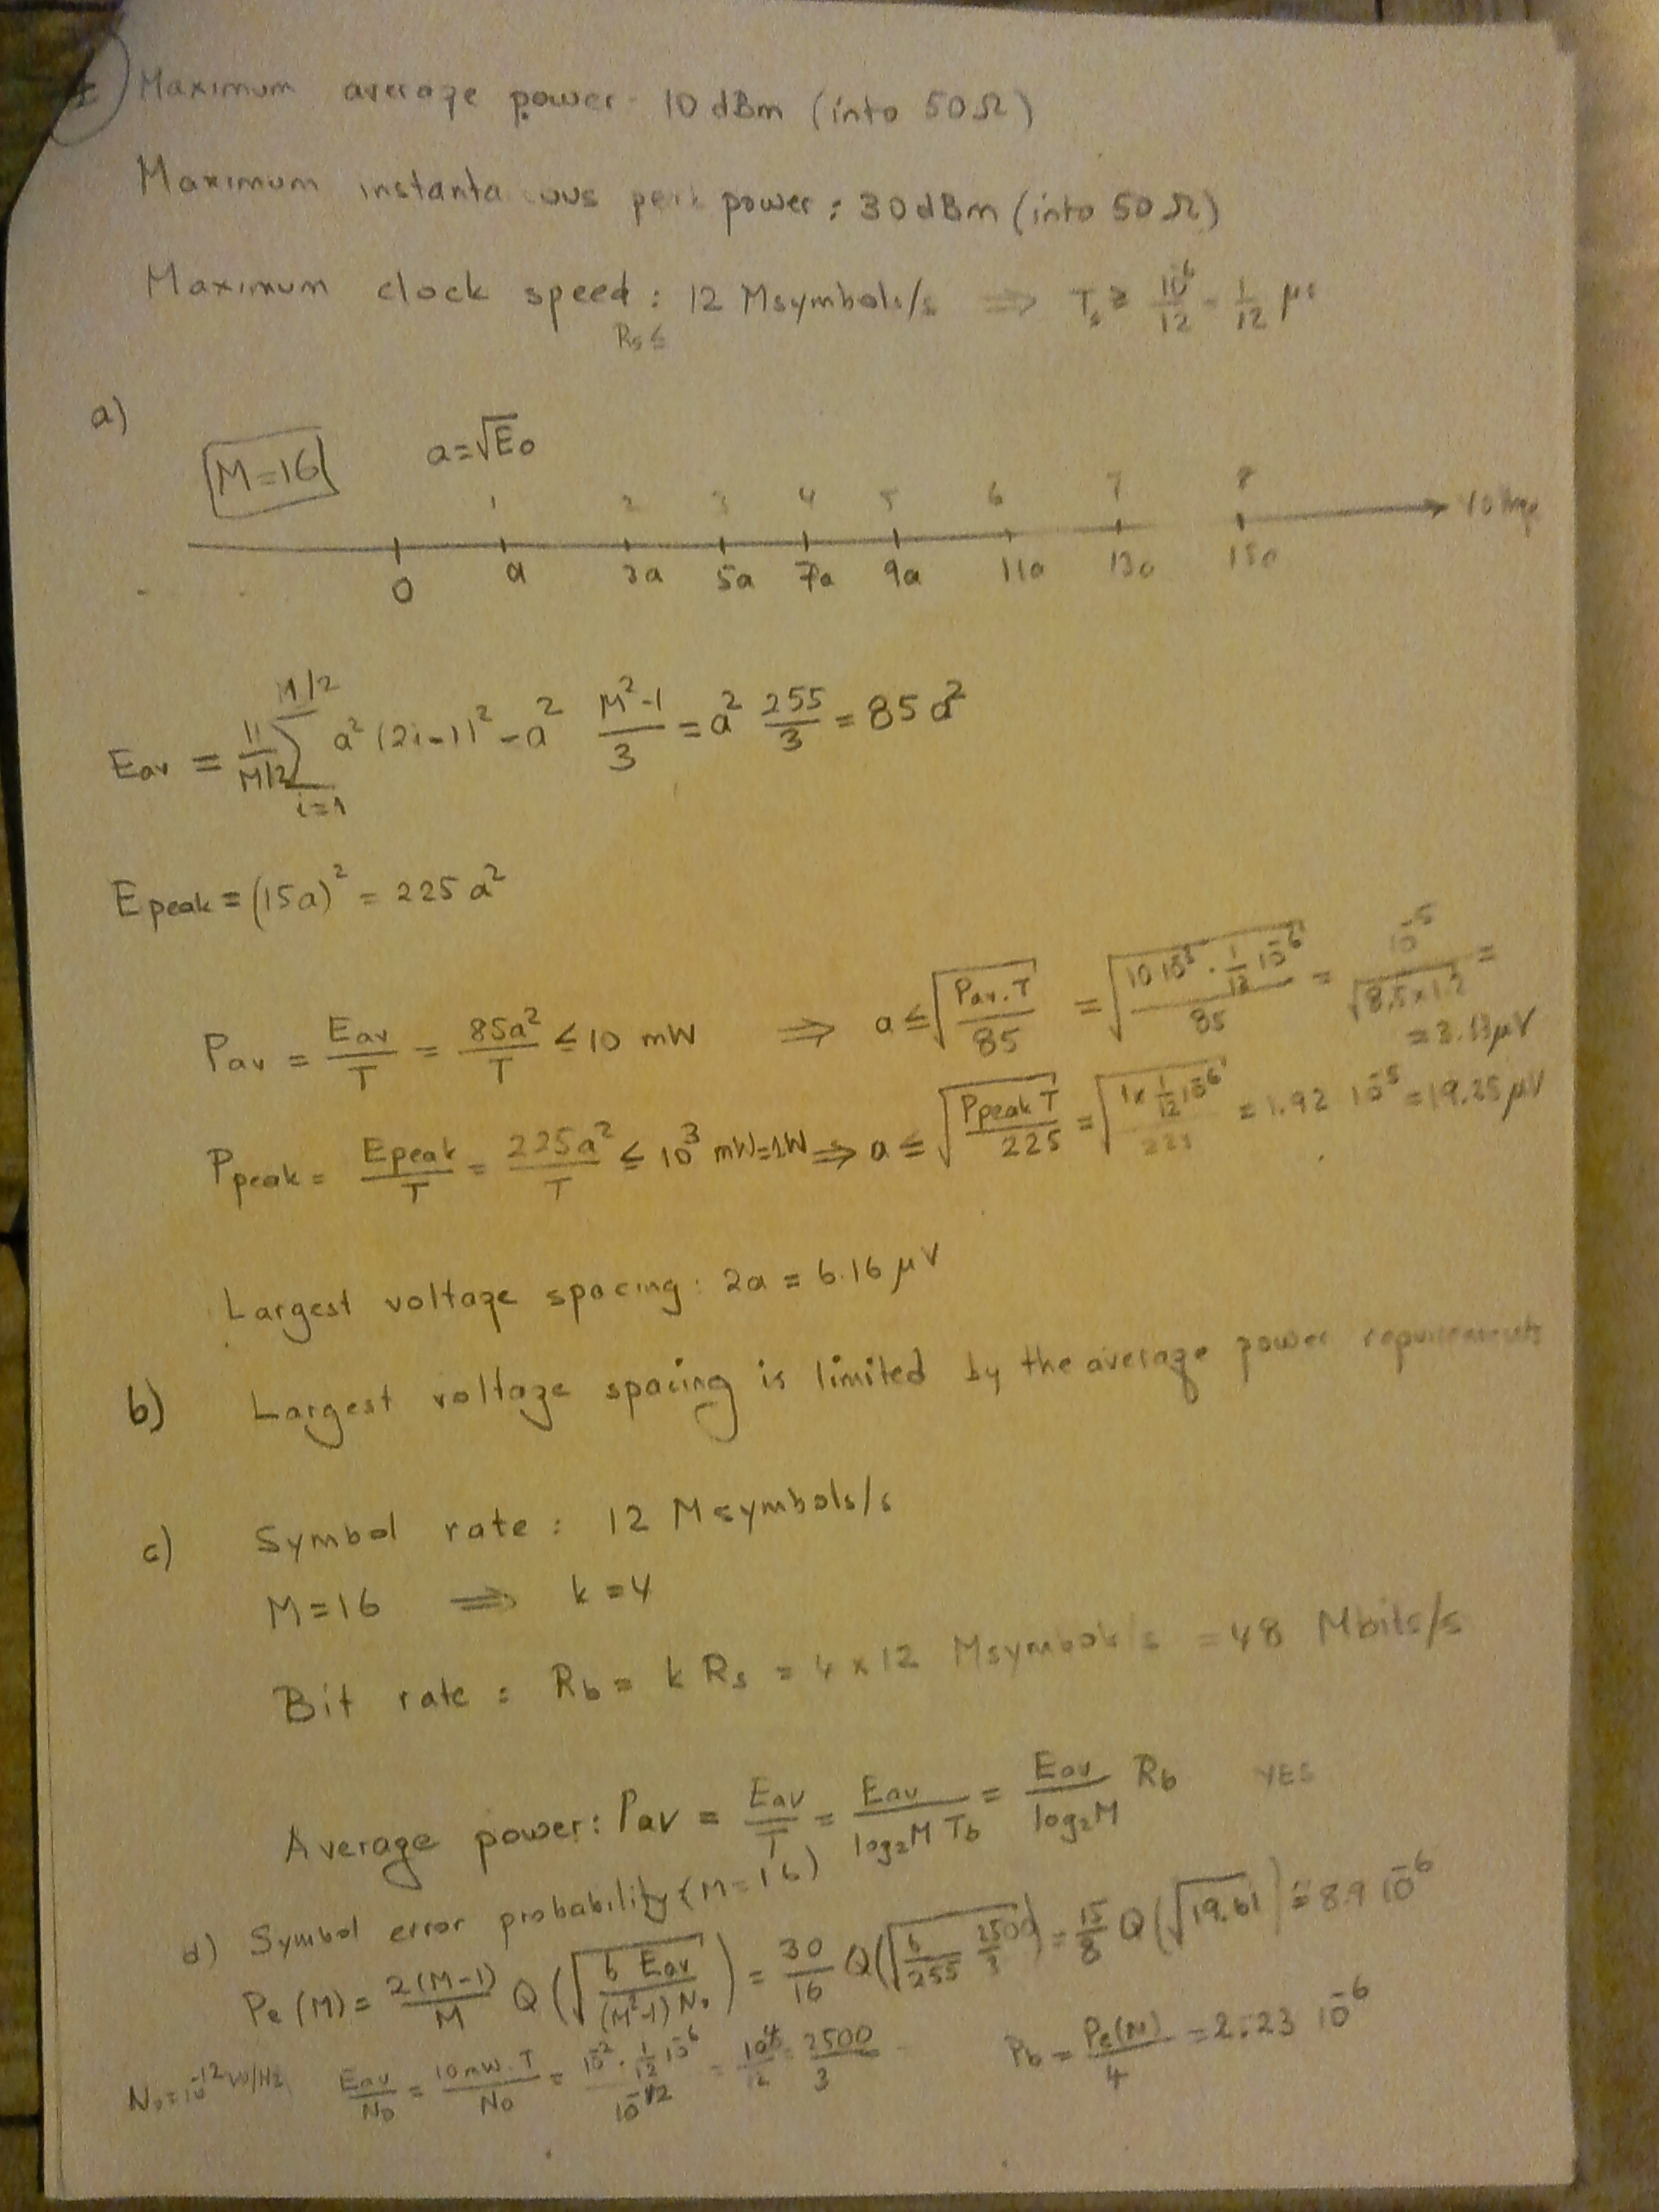 Maximum average power: 10 dBm (into 50Ω)
Maximum instanta ous peak power: 30 dBm (into 50Ω)
Maximum clock speed: 12 Msymbols/s ⇒ Ts ≥ 10^-6/12 = 1/12 μs
Rs ≤
a)
M=16 a=√E0
1 2 3 4 5 6 7 8
0 a 3a 5a 7a 9a 11a 13a 15a
Eav = 1/(M/2) ∑_{i=1}^{M/2} a² (2i-1)² = a² (M²-1)/3 = a² 255/3 = 85 a²
Epeak = (15a)² = 225 a²
Pav = Eav/T = 85a²/T ≤ 10 mW ⇒ a ≤ √(Pav.T/85) = √(10 10^-3 . 1/12 10^-6 / 85) = 10^-5/√(8.5×1.2) =
= 3.13 μV
Ppeak = Epeak/T = 225a²/T ≤ 10³ mW=1W ⇒ a ≤ √(Ppeak T/225) = √(1x 1/12 10^-6 / 225) = 1.92 10^-5 = 19.25 μV
Largest voltage spacing: 2a = 6.16 μV
b) Largest voltage spacing is limited by the average power requirements
c) Symbol rate: 12 Msymbols/s
M=16 ⇒ k=4
Bit rate: Rb = k Rs = 4×12 Msymbols/s = 48 Mbits/s
Average power: Pav = Eav/T = Eav/(log2M Tb) = Eav/log2M Rb YES
d) Symbol error probability (M=16)
Pe(M) = 2(M-1)/M Q(√(6 Eav/((M²-1) N0))) = 30/16 Q(√(6/255 2500/3)) = 15/8 Q(√19.61) = 8.9 10^-6
N0=10^-12 W/Hz Eav/N0 = 10mW.T/N0 = 10^-2 . 1/12 10^-6 / 10^-12 = 10^4/12 = 2500/3 Pb = Pe(M)/4 = 2.23 10^-6